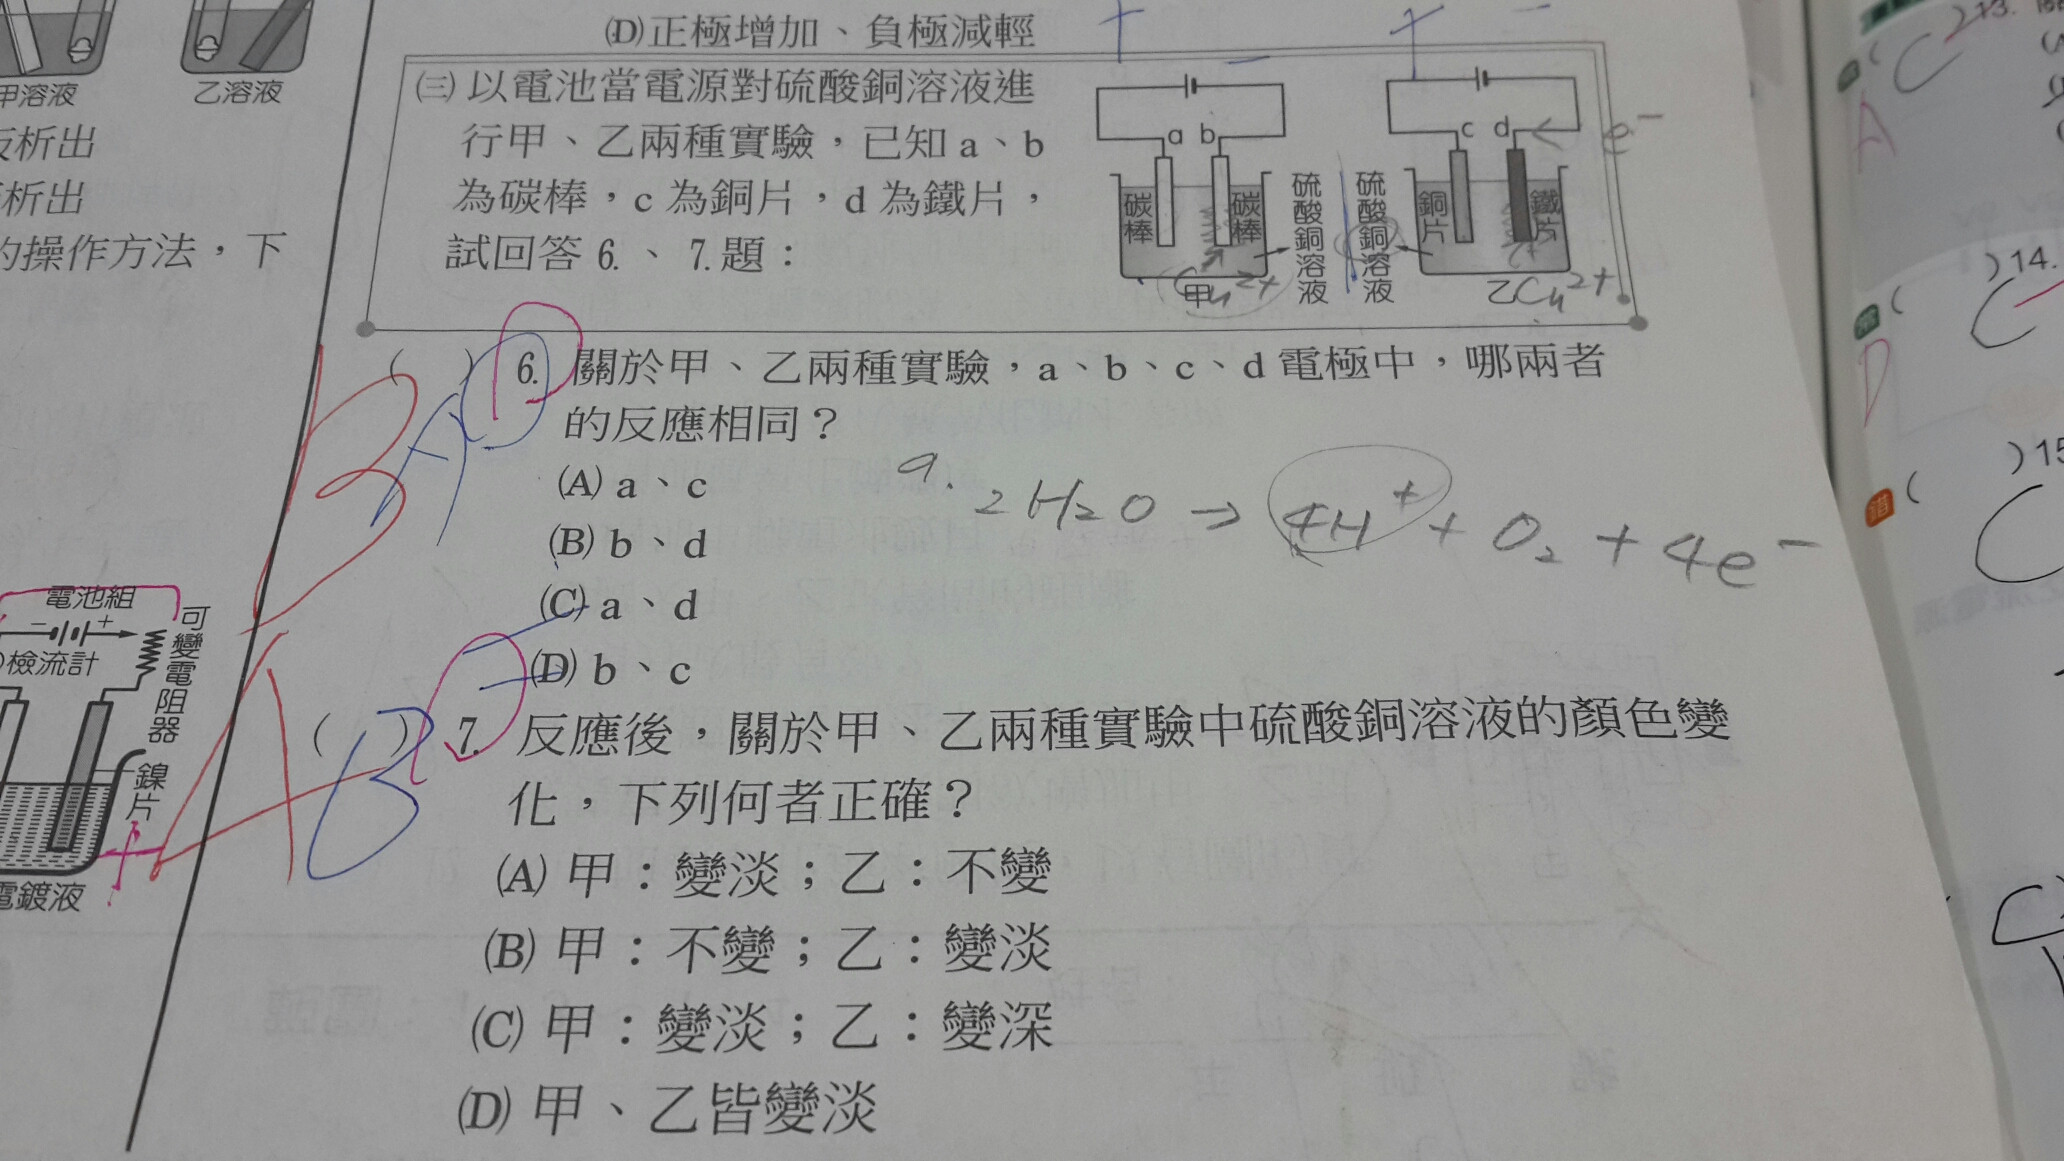 (D)正極增加、負極減輕
甲溶液
乙溶液
板析出
析出
的操作方法，下
(三) 以電池當電源對硫酸銅溶液進
行甲、乙兩種實驗，已知 a、b
為碳棒，c 為銅片，d 為鐵片，
試回答 6.、7.題：
+
−
+
−
a b
碳棒
碳棒
硫酸銅溶液
甲
Cu2+
c d
e−
硫酸銅溶液
銅片
鐵片
乙
Cu2+
( ) 6. 關於甲、乙兩種實驗，a、b、c、d 電極中，哪兩者
的反應相同？
(A) a、c
(B) b、d
(C) a、d
(D) b、c
B
A
a. 2H2O → 4H+ + O2 + 4e−
( ) 7. 反應後，關於甲、乙兩種實驗中硫酸銅溶液的顏色變
化，下列何者正確？
(A) 甲：變淡；乙：不變
(B) 甲：不變；乙：變淡
(C) 甲：變淡；乙：變深
(D) 甲、乙皆變淡
A
B
電池組
− +
檢流計
可變電阻器
鎳片
+
電鍍液
( )13.
C
A
( )14.
C
D
錯
( )15
C